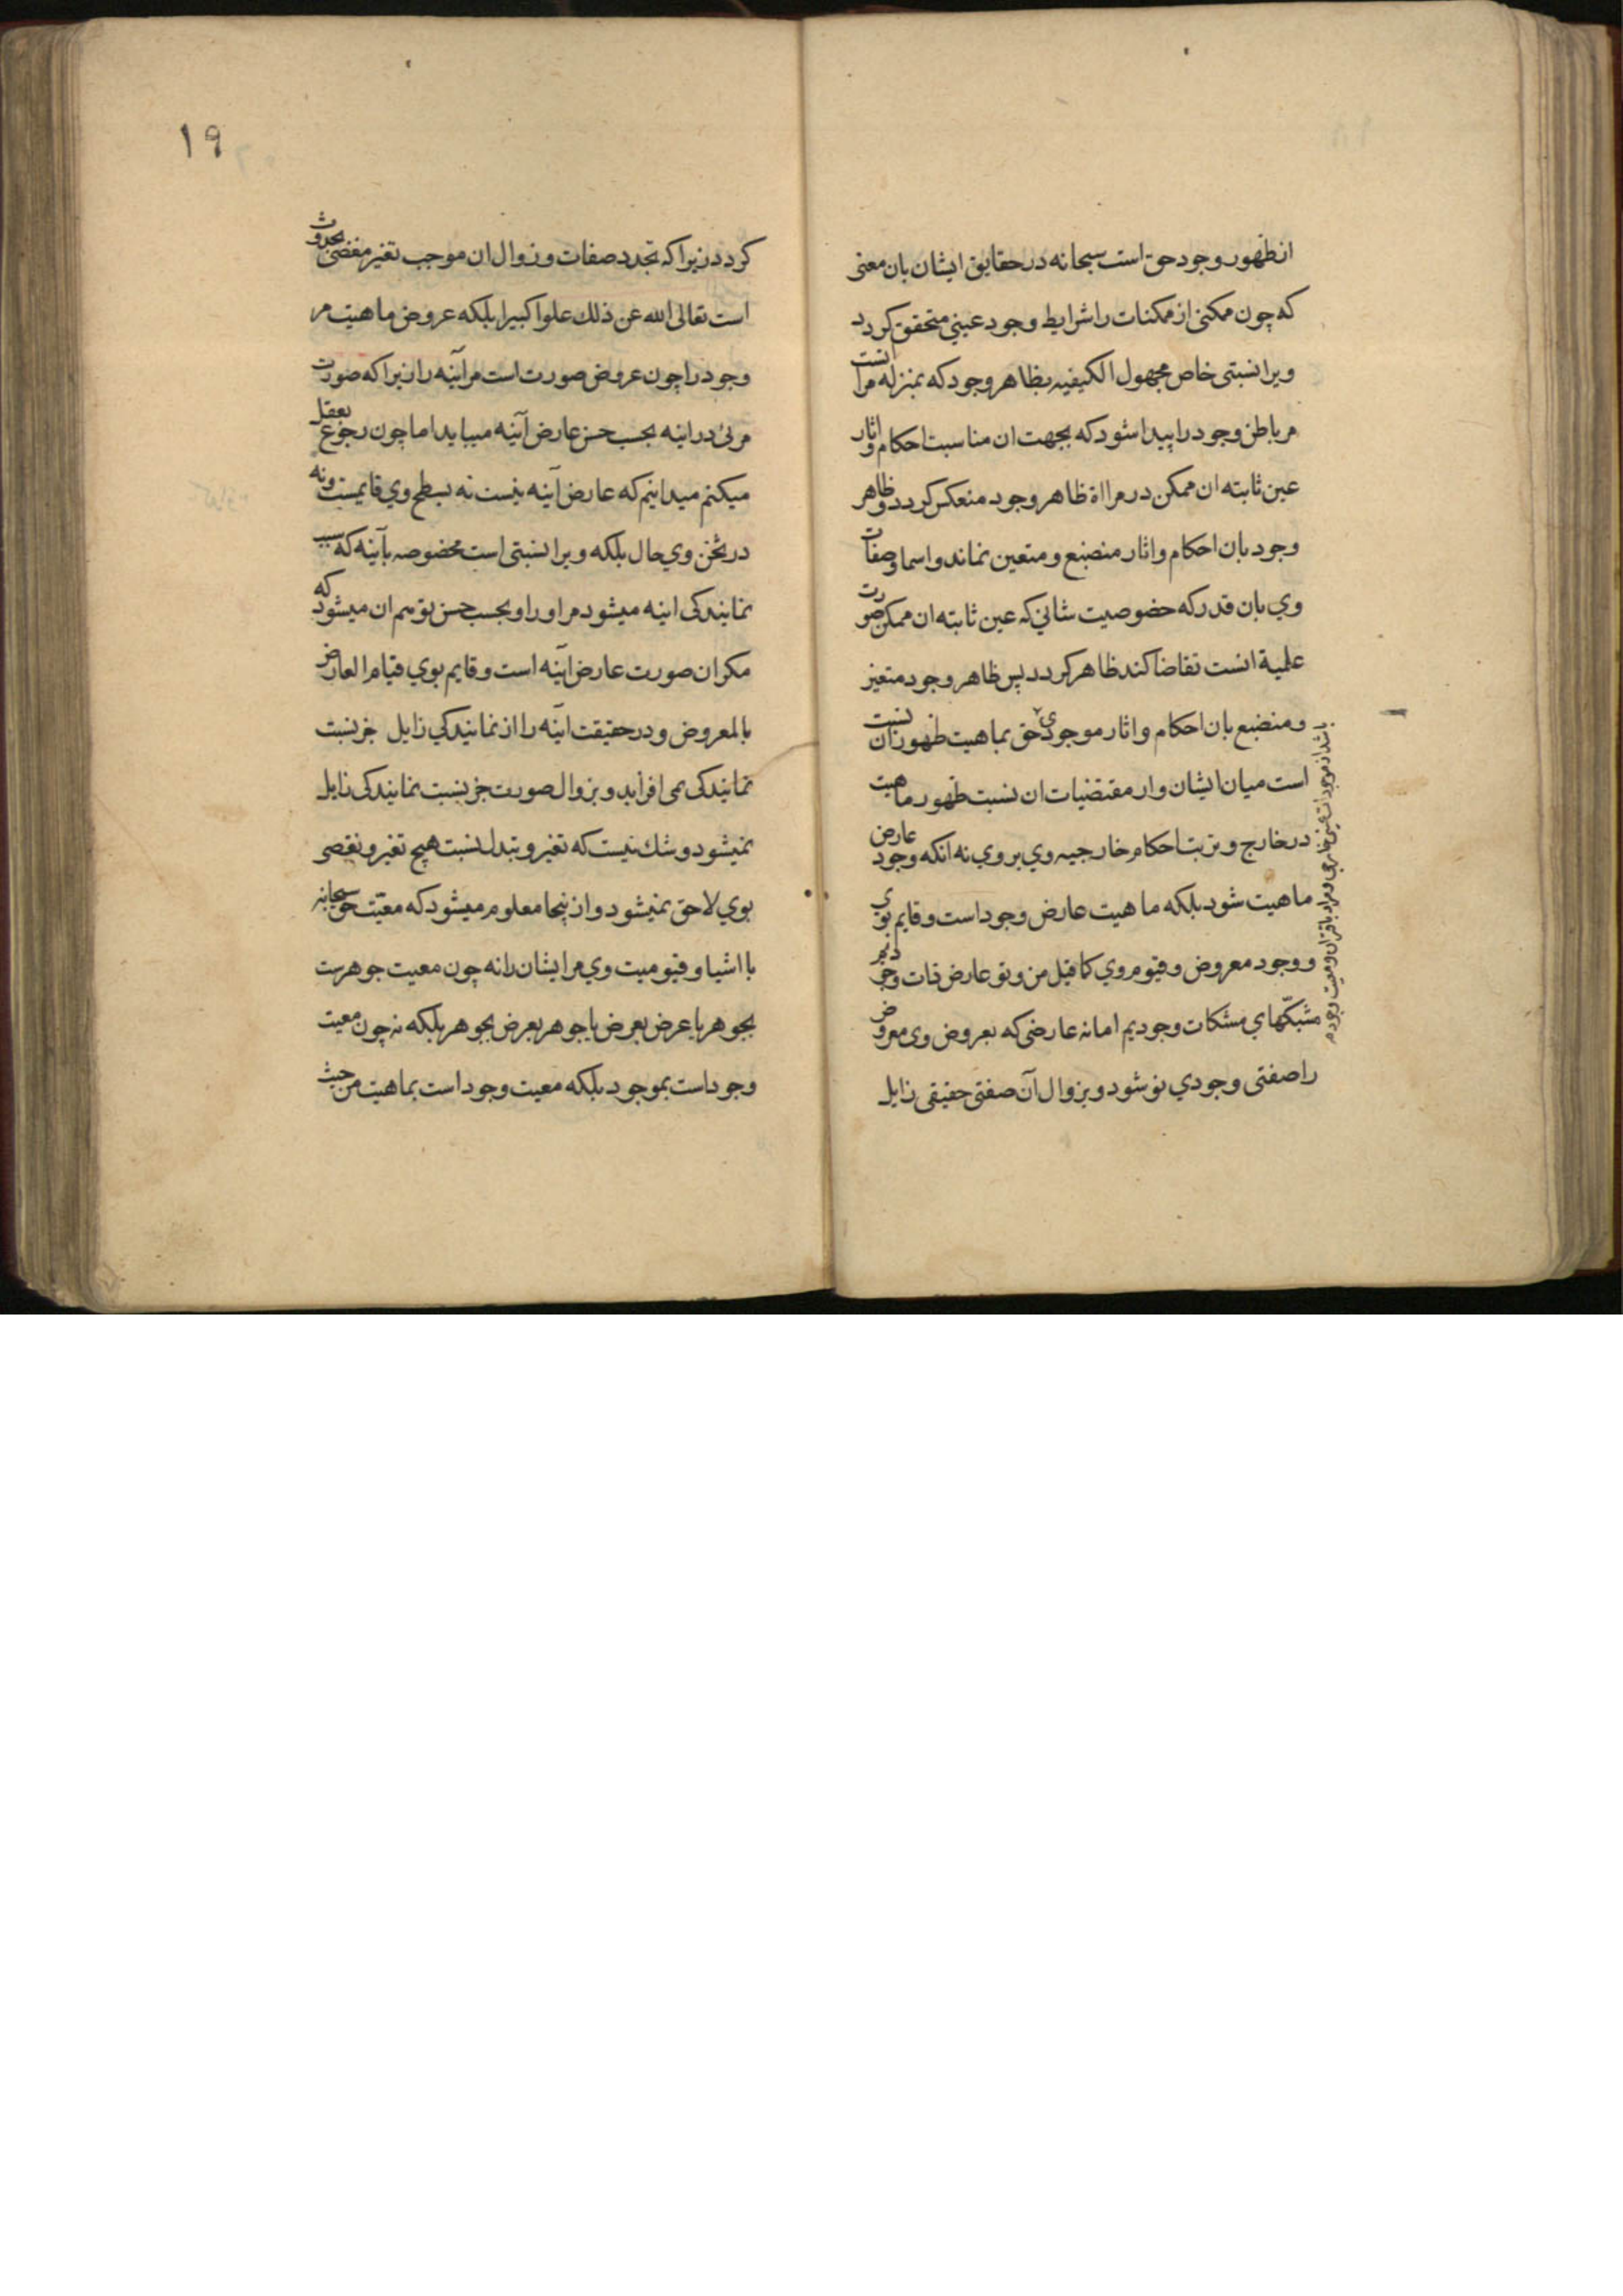 از ظهور وجود حق است سبحانه در حقایق ایشان بان معنی
که چون ممکنی از ممکنات را شرایط وجود عینی متحقق کردد
ویرا نسبتی خاص مجهول الکیفیه بظاهر وجود که بمنزله مرآتست
مر باطن وجود را پیدا شود که بجهت ان مناسبت احکام و اثار
عین ثابته ان ممکن در مراة ظاهر وجود منعکس کردد و ظاهر
وجود بان احکام و اثار منصبغ و متعین نماند و اسما و صفات
وي بان قدر که خصوصیت شاني که عین ثابته ان ممکن صورت
علمیة انست تقاضا کند ظاهر کردد پس ظاهر وجود متعین
و منصبغ بان احکام و اثار موجودی حق بماهیت ظهوران نسبت
است میان ایشان و از مقتضیات ان نسبت ظهور ماهیت
در خارج و ترتب احکام خارجیه وي بر وي نه انکه وجود عارض
ماهیت شود بلکه ماهیت عارض وجود است و قایم بوي
و وجود معروض و قیوم وي کما قیل من و تو عارض ذات وجودیم
مشبکهاي مشکات وجودیم اما نه عارضی که بعروض وی معروض
را صفتی وجودي نو شود و بزوال آن صفتی حقیقی زایل
باشد از موجودات عینی خارجی و مراد باقتران و معیت وجود م
١٩
کردد زیرا که تجدد صفات و زوال ان موجب تغیر مفضی بحدوث
است تعالی الله عن ذلك علوا کبیرا بلکه عروض ماهیت مر
وجود را چون عروض صورت است مر آینه را زیرا که صورت
مرئی در اینه بحسب حس عارض آینه میباید اما چون رجوع بعقل
میکنم میدانیم که عارض آینه نیست نه بسطح وي قایمست و نه
در ثخن وي حال بلکه ویرا نسبتی است مخصوصه بآینه که سبب
نمایندکی اینه میشود مر او را و بحسب حس توهم ان میشود که
مکر ان صورت عارض اینه است و قایم بوي قیام العارض
بالمعروض و در حقیقت اینه را از نمایندکي زایل جز نسبت
نمایندکی نمی افزاید و بزوال صورت جز نسبت نمایندکی زایل
نمیشود و شك نیست که تغیر و تبدل نسبت هیچ تغیر و نقصی
بوي لاحق نمیشود و از ینجا معلوم میشود که معیّت حق سبحانه
با اشیا و قیومیت وي مر ایشان را نه چون معیت جوهرست
بجوهر یا عرض بعرض یا جوهر بعرض بجوهر بلکه نه چون معیت
وجود است بموجود بلکه معیت وجود است بماهیت من حیث